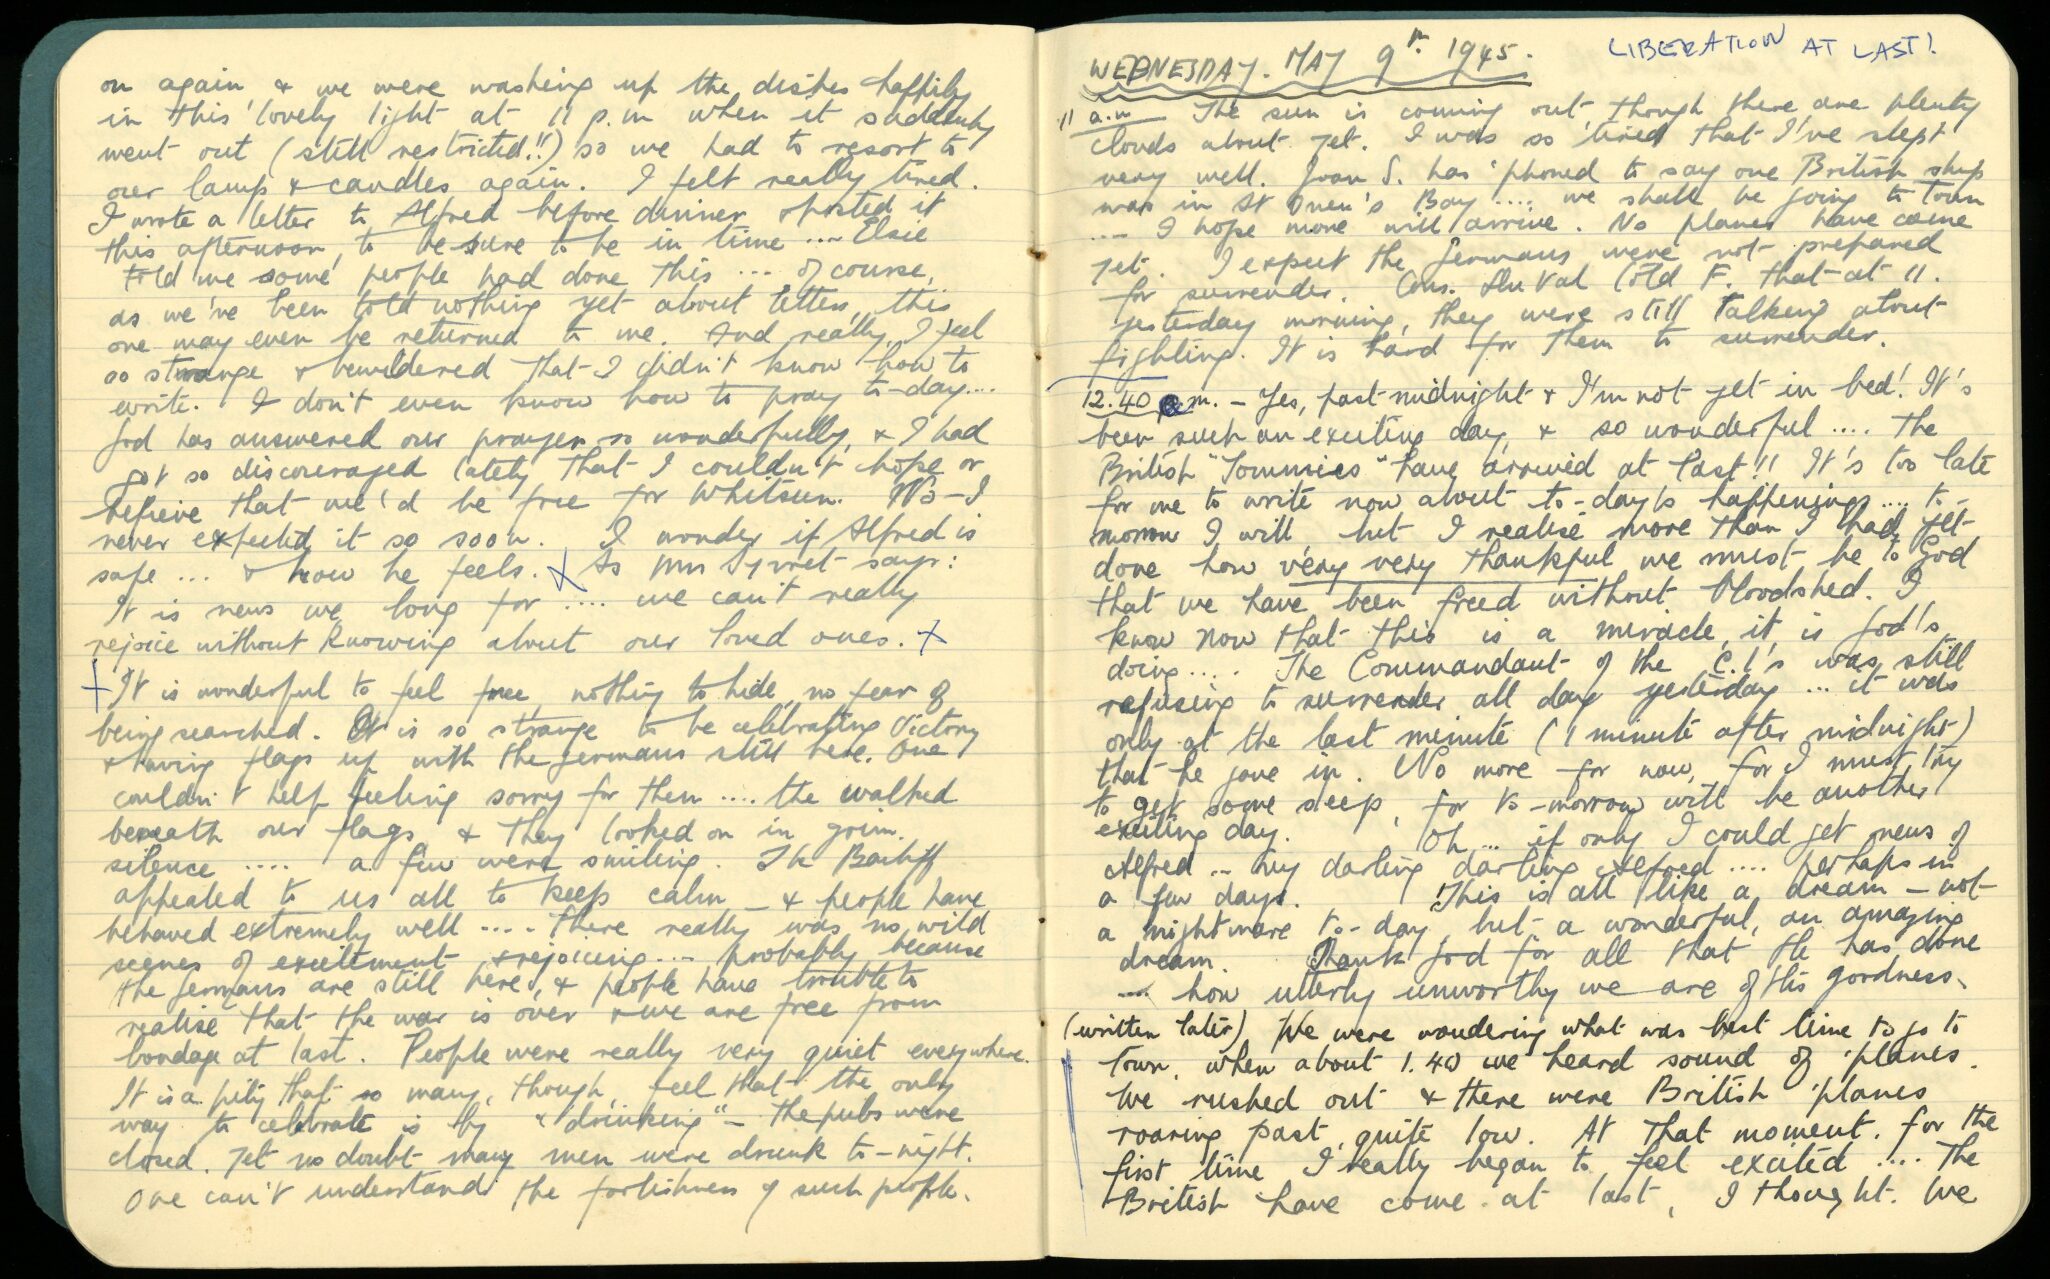 on again & we were washing up the dishes happily
in this lovely light at 11 p.m when it suddenly
went out (still restricted!!) so we had to resort to
our lamp & candles again. I felt really tired.
I wrote a letter to Alfred before dinner & posted it
this afternoon, to be sure to be in time ... Elsie
told me some people had done this ... of course,
as we've been told nothing yet about letters, this
one may even be returned to me. And really, I feel
so strange & bewildered that I didn't know how to
write. I don't even know how to pray to-day...
God has answered our prayers so wonderfully, & I had
got so discouraged lately that I couldn't hope or
believe that we'd be free for Whitsun. No - I
never expected it so soon. I wonder if Alfred is
safe ... & how he feels. X As Mrs Syvret says:
It is news we long for .... we can't really
rejoice without knowing about our loved ones. X
It is wonderful to feel free, nothing to hide, no fear of
being searched. It is so strange to be celebrating Victory
& having flags up with the Germans still here. One
couldn't help feeling sorry for them .... the walked
beneath our flags & they looked on in grim
silence .... a few were smiling. The Bailiff
appealed to us all to keep calm - & people have
behaved extremely well .... there really was no wild
scenes of excitement & rejoicing .... probably because
the Germans are still here, & people have trouble to
realise that the war is over & we are free from
bondage at last. People were really very quiet everywhere.
It is a pity that so many, though, feel that the only
way to celebrate is by "drinking" - the pubs were
closed. Yet no doubt many men were drunk to-night.
One can't understand the foolishness of such people.
WEDNESDAY. MAY 9th 1945.
LIBERATION AT LAST!
11 a.m The sun is coming out, though there are plenty
clouds about yet. I was so tired that I've slept
very well. Joan S. has 'phoned to say one British ship
was in St Ouen's Bay .... we shall be going to town
.... I hope more will arrive. No planes have come
yet. I expect the Germans were not prepared
for surrender. Cons. Du Val told F. that at 11.
yesterday morning, they were still talking about
fighting. It is hard for them to surrender.
12.40 m. - Yes, past midnight & I'm not yet in bed! It's
been such an exciting day, & so wonderful .... The
British "Tommies" have arrived at last!! It's too late
for me to write now about to-day's happenings .... to-
morrow I will but I realise more than I had yet
done how very very thankful we must be to God
that we have been freed without bloodshed. I
know now that this is a miracle, it is God's
doing .... The Commandant of the C.I's was still
refusing to surrender all day yesterday ... it was
only at the last minute (1 minute after midnight)
that he gave in. No more for now, for I must try
to get some sleep, for to-morrow will be another
exciting day. Oh ... if only I could get news of
Alfred ... my darling darling Alfred .... perhaps in
a few days. This is all like a dream - not
a nightmare to-day, but a wonderful, an amazing
dream. Thank God for all that He has done
.... how utterly unworthy we are of His goodness.
(written later) We were wondering what was best time to go to
town, when about 1.40 we heard sound of 'planes.
We rushed out & there were British 'planes
roaring past, quite low. At that moment, for the
first time I really began to feel excited .... The
British have come at last, I thought. We